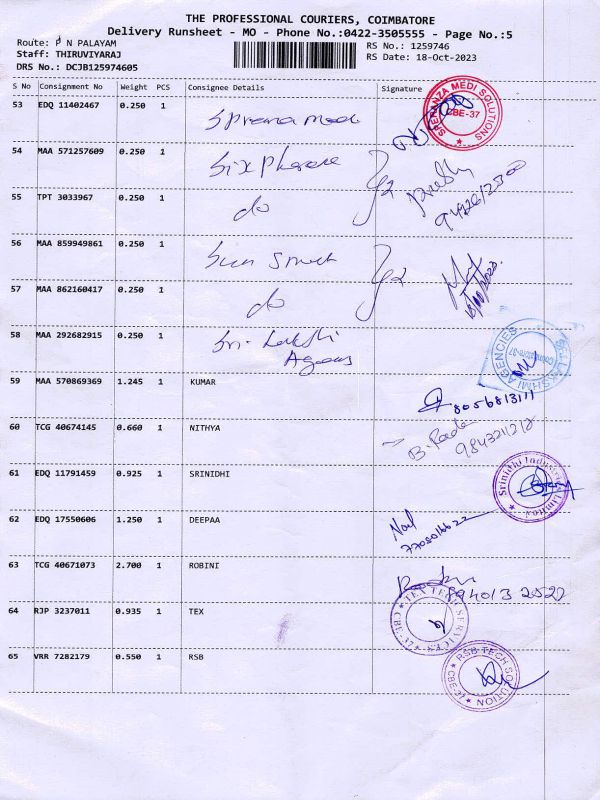 THE PROFESSIONAL COURIERS, COIMBATORE
Delivery Runsheet - MO - Phone No.:0422-3505555 - Page No.:5
Route: P N PALAYAM
RS No.: 1259746
Staff: THIRUVIYARAJ
RS Date: 18-Oct-2023
DRS No.: DCJB125974605
S No Consignment No Weight PCS Consignee Details Signature
53 EDQ 11402467 0.250 1
CBE-37
54 MAA 571257609 0.250 1
55 TPT 3033967 0.250 1 do
56 MAA 859949861 0.250 1 Sun
57 MAA 862160417 0.250 1 do
58 MAA 292682915 0.250 1 Sri. Lakshi
59 MAA 570869369 1.245 1 KUMAR
60 TCG 40674145 0.660 1 NITHYA
61 EDQ 11791459 0.925 1 SRINIDHI
Srinidhi Industries Limited
62 EDQ 17550606 1.250 1 DEEPAA
63 TCG 40671073 2.700 1 ROBINI
64 RJP 3237011 0.935 1 TEX
TEX TECH SERVICES CBE-37
65 VRR 7282179 0.550 1 RSB
RSB TECH SOLUTION CBE-37